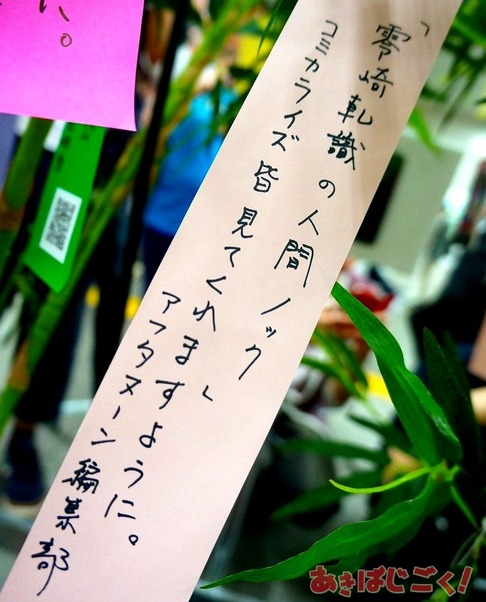 「零崎軋識の人間ノック」
コミカライズ皆見てくれますように。
アフタヌーン編集部
い。
あきばじごく!